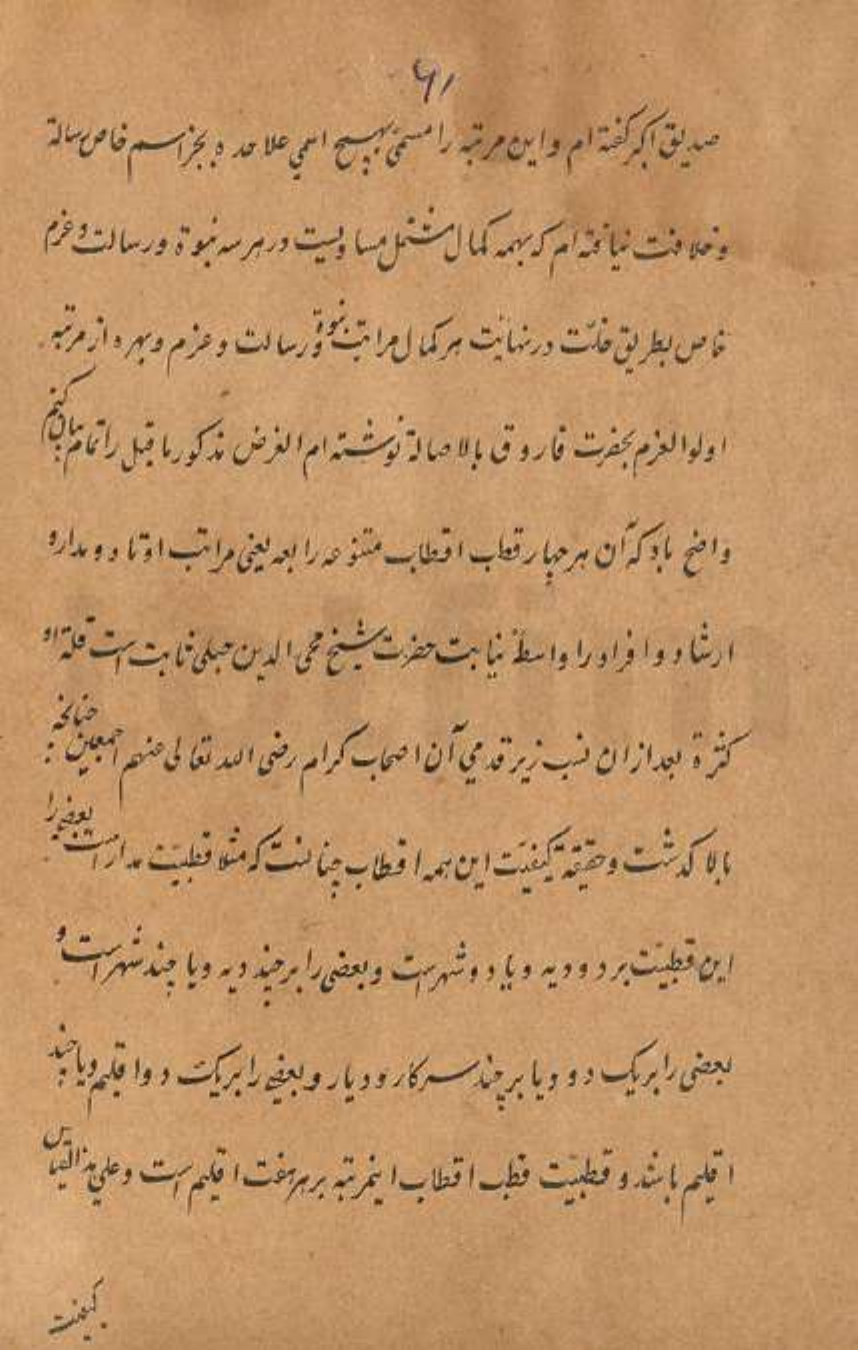 ۶۱
صدیق اکبر گفته ام و این مرتبه را مسمی بهیچ اسمی علاحده بجز اسم خاص رسالة
و خلافت نیافته ام که بهمه کمال مشتمل مساویست در هر سه نبوة و رسالت و عزم
خاص بطریق خلّت در نهایت هر کمال مراتب نبوة و رسالت و عزم و بهره از مرتبه
اولوالعزم بحضرت فاروق بالاصالة نوشته ام الغرض مذکور ما قبل را تمام بیان کنم
واضح باد که آن هر چهار قطب اقطاب متنوعه رابعه یعنی مراتب اوتاد و مدار و
ارشاد و افراد را واسطهٔ نیابت حضرت شیخ محی الدین جبلی ثابت است قلة او
کثرة بعد ازان نسب زیر قدمی آن اصحاب کرام رضی الله تعالی عنهم اجمعین چنانچه
بالا گذشت و حقیقة کیفیت این همه اقطاب چنانست که مثلا قطبیّت مدار است بعضی را
این قطبیّت بر دو دیه و یا دو شهر است و بعضی را بر چند دیه و یا چند شهر است و
بعضی را بر یک دو و یا بر چند سرکار و دیار و بعضی را بر یک دو اقلیم و یا چند
اقلیم باشد و قطبیّت قطب اقطاب اینمرتبه بر هر هفت اقلیم است و علی هذا القیاس
کیفیت